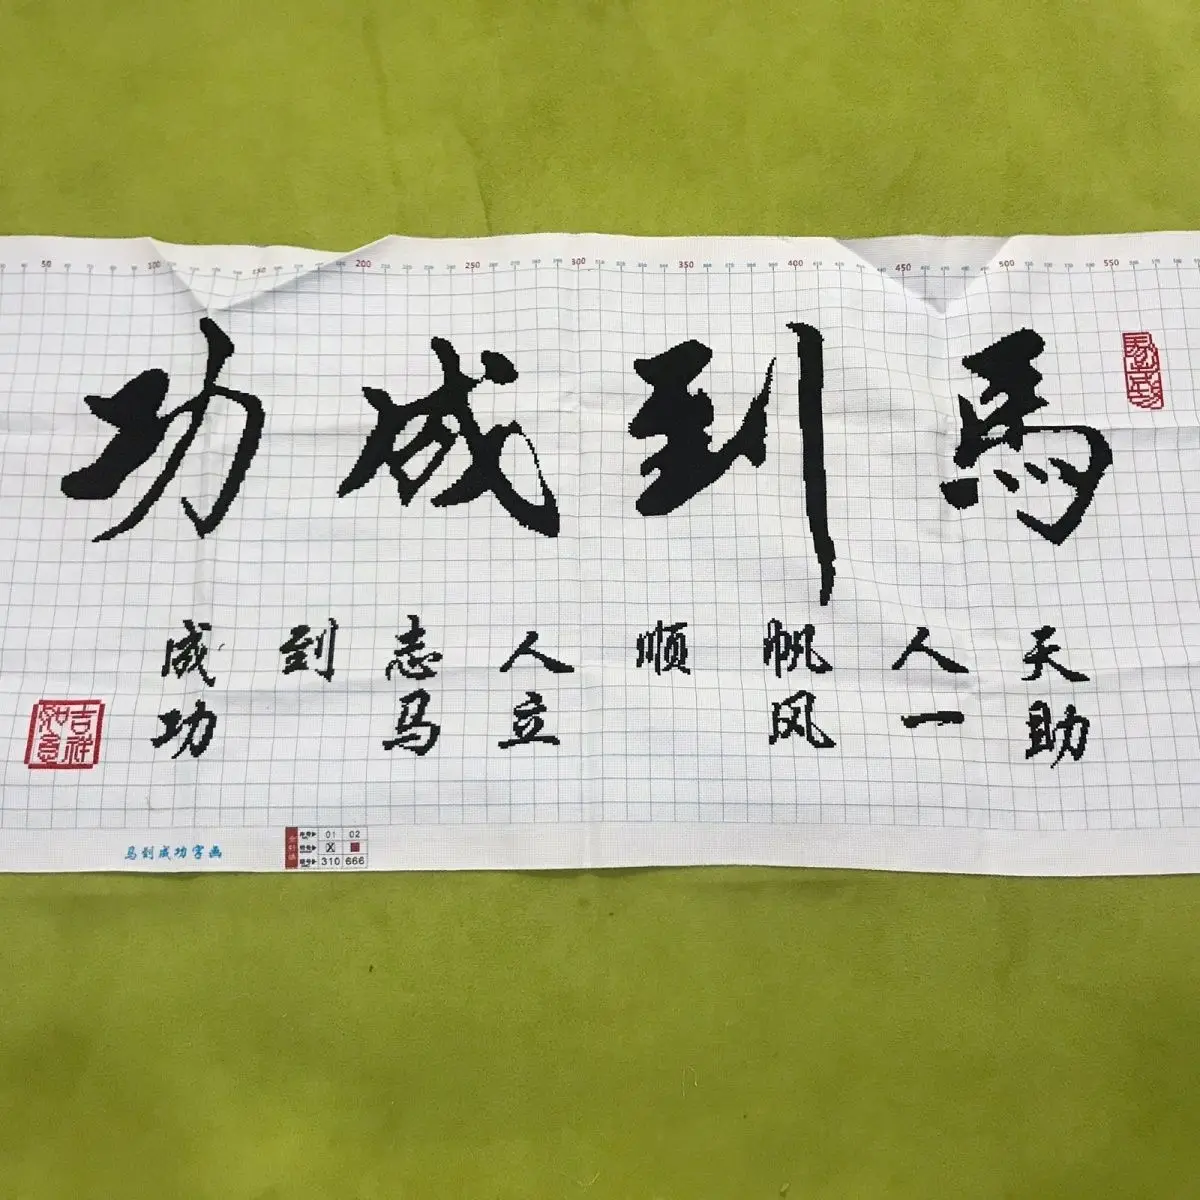 50 100 200 250 300 350 400 450 500 550
馬到成功
天助
人一
帆风
顺
人立
志马
到
成功
吉祥
如意
马到成功字画
01 02
X
310 666